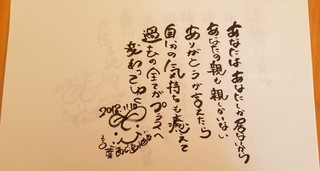 あなたは あなたしか 居ないから
あなたの親も 親しかいない
ありがとうが言えたら
自分の気持ちも癒えて
過去の全てがプラスへ
変わってゆく